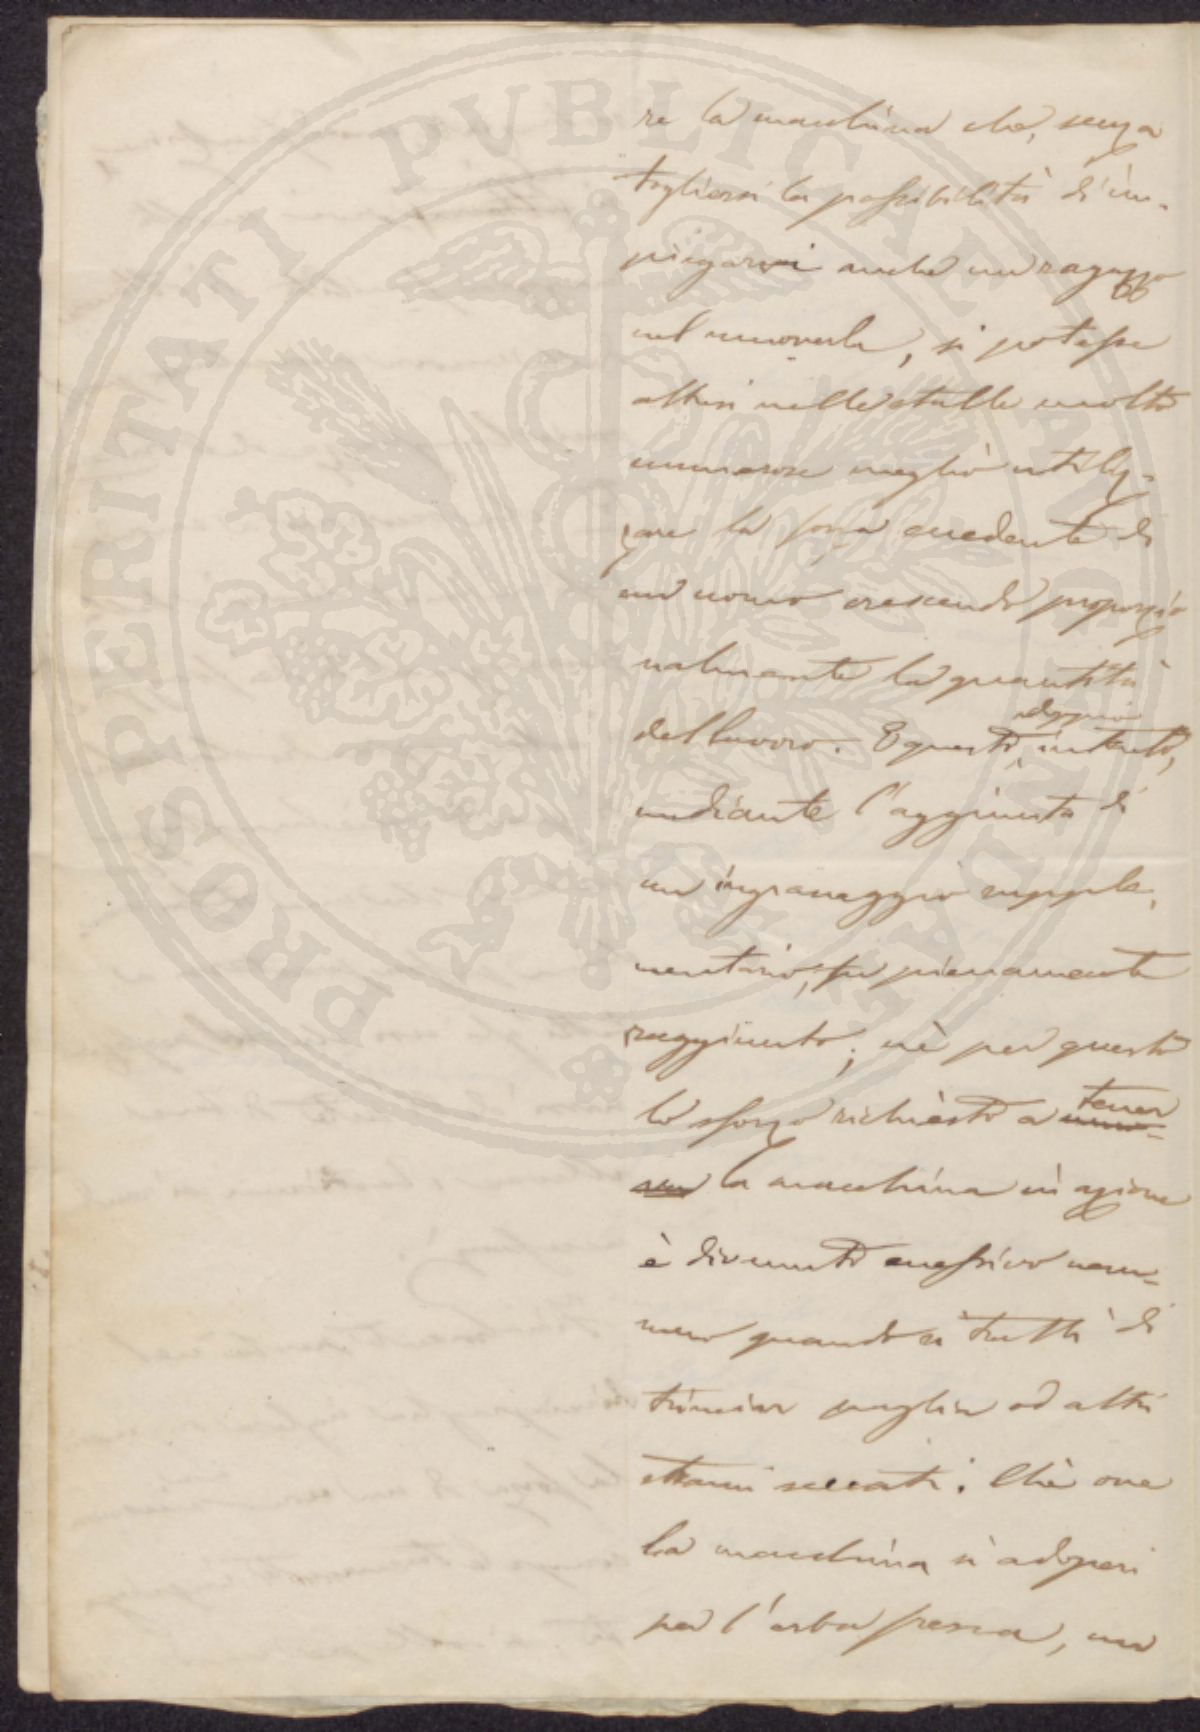 PROSPERITATI PVBLICAE AVGENDAE
re la macchina che, senza
togliersi la possibilità d'im-
piegarvi anche un ragazzo
nel muoverla, si potesse
altresì nelle stalle molto
numerose meglio utiliz-
zare la forza eccedente di
un uomo crescendo proporzio
nalmente la quantità
del lavoro. E questo, intento,
mediante l'aggiunta di
un ingranaggio supple-
mentario, fu pienamente
raggiunto; nè per questo
lo sforzo richiesto a tener
la macchina in azione
è divenuto eccessivo nem-
meno quando si tratti di
trinciar paglia od altri
strami seccati. Chè ove
la macchina si adoperi
per l'erba fresca, un